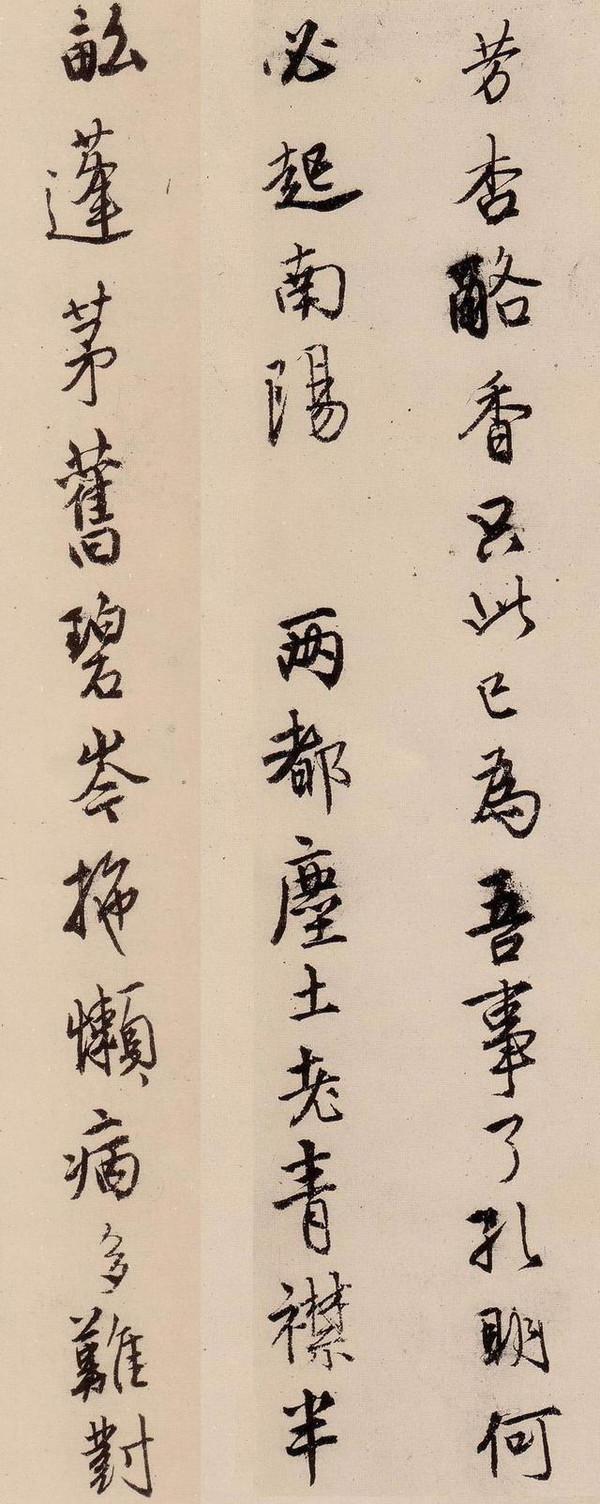 芳杏酪香只此已為吾事了孔明何
必起南陽 两都塵土老青襟半
畝蓬茅舊碧岑拖懶病多難對